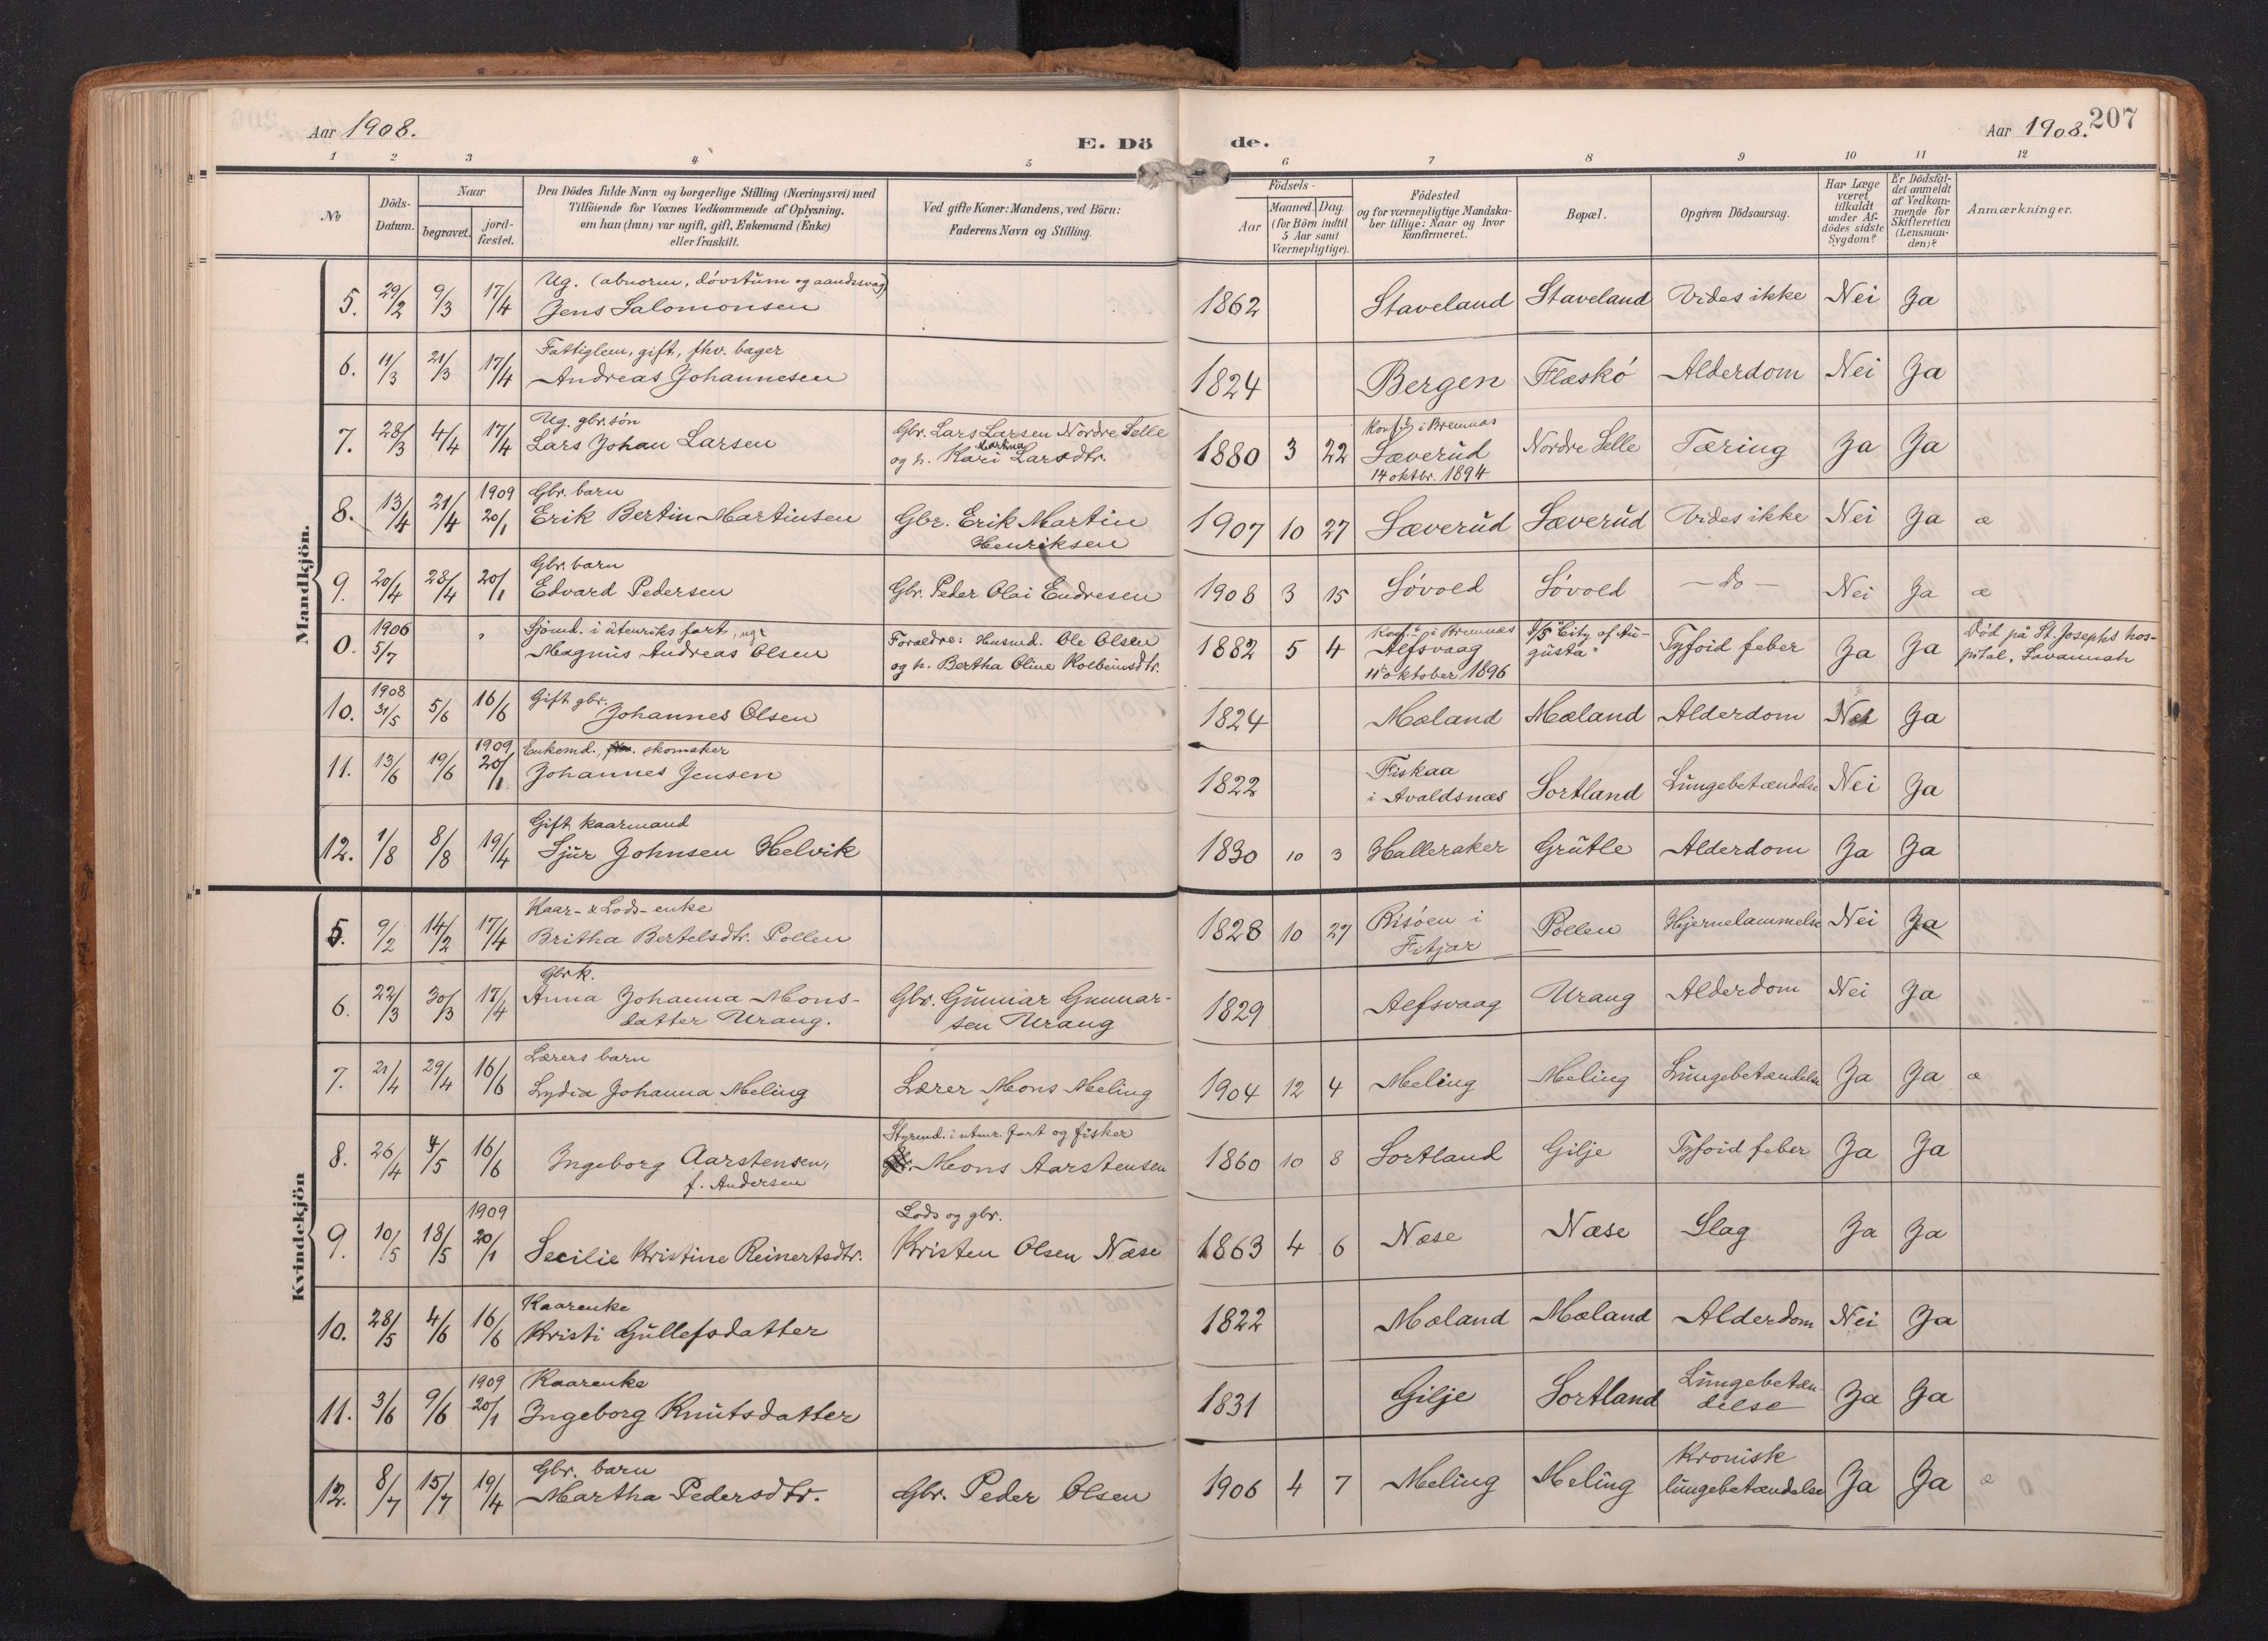 Aar 1908.
E. Dö de.
Aar 1908. 207
1 2 3 4 5 6 7 8 9 10 11 12
No
Döds-Datum.
Naar
begravet.
jord-fæstet.
Den Dödes fulde Navn og borgerlige Stilling (Næringsvei) med
Tilföiende for Voxnes Vedkommende af Oplysning,
om han (hun) var ugift, gift, Enkemand (Enke)
eller fraskilt.
Ved gifte Koner: Mandens, ved Börn:
Faderens Navn og Stilling.
Födsels-
Aar
Maaned. Dag.
(for Börn indtil
5 Aar samt
Værnepligtige).
Födested
og for værnepligtige Mandska-
ber tillige: Naar og hvor
konfirmeret.
Bopæl.
Opgiven Dödsaarsag.
Har Læge
været
tilkaldt
under Af-
dödes sidste
Sygdom?
Er Dödsfal-
det anmeldt
af Vedkom-
mende for
Skifteretten
(Lensman-
den)?
Anmærkninger.
Mandkjön.
Ug. (abnorm, døvstum og aandssvag)
5. 29/2 9/3 17/4 Jens Salomonsen 1862 Staveland Staveland Vides ikke Nei Ja
Fattiglem, gift, fhv. bager
6. 11/3 21/3 17/4 Andreas Johannesen 1824 Bergen Flæskø Alderdom Nei Ja
Ug. gbr. søn
Gbr. Lars Larsen Nordre Selle
Konf. i Bremnes
7. 28/3 4/4 17/4 Lars Johan Larsen og h. Kari Martina Larsdtr. 1880 3 22 Sæverud Nordre Selle Tæring Ja Ja
14 oktbr. 1894
1909 Gbr. barn
8. 13/4 21/4 20/1 Erik Bertin Martinsen Gbr. Erik Martin 1907 10 27 Sæverud Sæverud Vides ikke Nei Ja æ
Henriksen
Gbr. barn
9. 20/4 28/4 20/1 Edvard Pedersen Gbr. Peder Olai Endresen 1908 3 15 Søvold Søvold — do — Nei Ja æ
1906 Sjømd. i utenriks fart, ug.
Forældre: Husmd. Ole Olsen
Konf. i Bremnes
0. 5/7 Magnus Andreas Olsen og h. Bertha Oline Kolbeinsdtr. 1882 5 4 Alfsvaag "City of Au-
gusta" Tyfoid feber Ja Ja Død på St. Josephs hos-
pital, Savannah
11 oktober 1896
1908
10. 31/5 5/6 16/6 Gift gbr. Johannes Olsen 1824 Mæland Mæland Alderdom Nei Ja
1909 Enkemd., skomaker
11. 13/6 19/6 20/1 Johannes Jensen 1822 Fiskaa
i Avaldsnæs Sortland Lungebetændelse Nei Ja
Gift kaarmand
12. 1/8 8/8 19/4 Sjur Johnsen Helvik 1830 10 3 Halleraker Grutle Alderdom Ja Ja
Kvindekjön
Kaar- & Lods-enke
5. 9/2 14/2 17/4 Britha Bertelsdtr. Pollen 1828 10 27 Risøen i
Fitjar Pollen Hjernelammelse Nei Ja
Gbrk.
6. 22/3 30/3 17/4 Anna Johanna Mons-
datter Urang. Gbr. Gunnar Gunnar-
sen Urang 1829 Alfsvaag Urang Alderdom Nei Ja
Lærers barn
7. 21/4 29/4 16/6 Lydia Johanna Meling Lærer Mons Meling 1904 12 4 Meling Meling Lungebetændelse Ja Ja æ
Styrmd. i utenr. fart og fisker
8. 26/4 4/5 16/6 Ingeborg Aarstensen,
f. Andersen Mons Aarstensen 1860 10 8 Sortland Gilje Tyfoid feber Ja Ja
1909 Lods og gbr.
9. 10/5 18/5 20/1 Secilie Kristine Reinertsdtr. Kristen Olsen Næse 1863 4 6 Næse Næse Slag Ja Ja
Kaarenke
10. 28/5 4/6 16/6 Kristi Gullefsdatter 1822 Mæland Mæland Alderdom Nei Ja
1909 Kaarenke
11. 3/6 9/6 20/1 Ingeborg Knutsdatter 1831 Gilje Sortland Lungebetæn-
delse Ja Ja
Gbr. barn
12. 8/7 15/7 19/4 Martha Pedersdtr. Gbr. Peder Olsen 1906 4 7 Meling Meling Kronisk
lungebetændelse Ja Ja æ